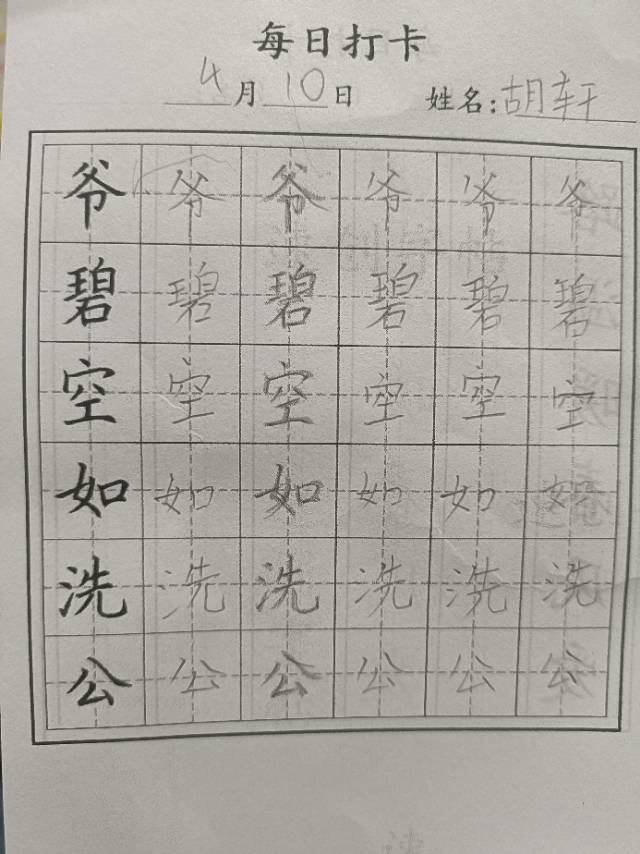 每日打卡
4月10日 姓名:胡轩
爷爷爷爷爷爷
碧碧碧碧碧碧
空空空空空空
如如如如如如
洗洗洗洗洗洗
公公公公公公